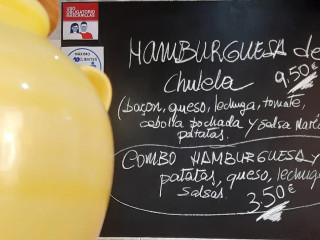 USO
OBLIGATORIO
MASCARILLAS
MÁXIMO
CLIENTES
HAMBURGUESA de
Chuleta
9,50€
(bacon, queso, lechuga, tomate,
cebolla pochada y salsa
patatas.
COMBO HAMBURGUESA Y
patatas, queso, lechuga
salsas.
3.50€